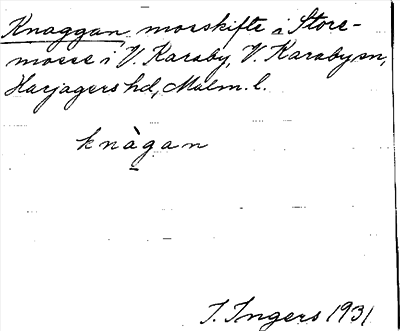 Knaggan, morskifte å Store-
mosse i V. Karaby, V. Karaby sn,
Harjagers hd, Malm. l.
knàgan
I. Ingers 1931